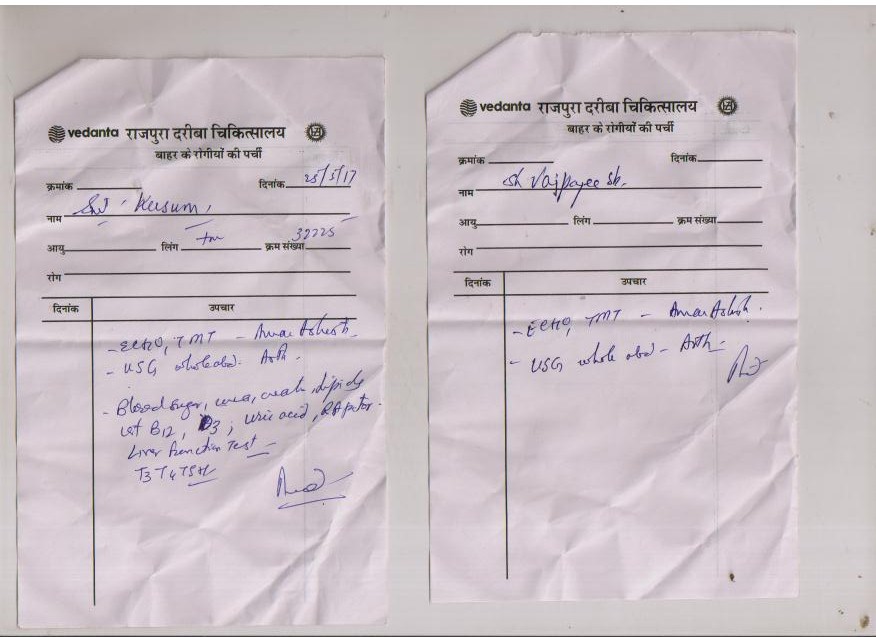 vedanta राजपुरा दरीबा चिकित्सालय
बाहर के रोगीयों की पर्ची
क्रमांक दिनांक 25/5/17
नाम Smt. Kusum
आयु लिंग क्रम संख्या 32225
रोग
दिनांक उपचार
- ECHO, TMT - Amar Ashish
- USG whole abd. Arth.
- Blood sugar, urea, creat, lipids
vit B12, D3, uric acid, RA factor.
Liver Function Test -
T3 T4 TSH
vedanta राजपुरा दरीबा चिकित्सालय
बाहर के रोगीयों की पर्ची
क्रमांक दिनांक
नाम Sh Vajpayee Sb.
आयु लिंग क्रम संख्या
रोग
दिनांक उपचार
- ECHO, TMT - Amar Ashish.
- USG whole abd - Arth.